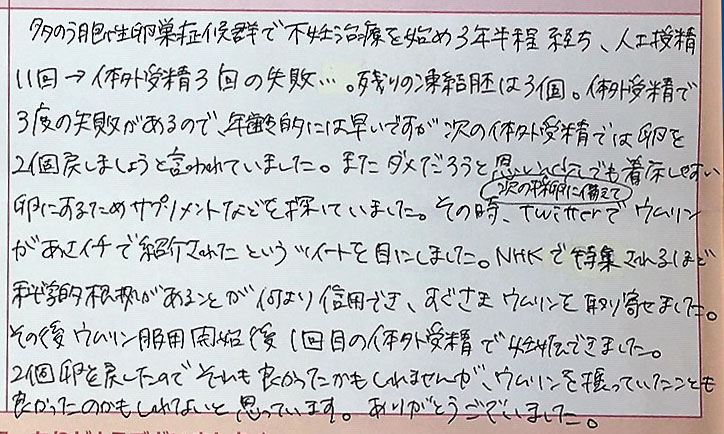 多のう胞性卵巣症候群で不妊治療を始め3年半程経ち、人工授精
11回→体外受精3回の失敗…。残りの凍結胚は3個。体外受精で
3度の失敗があるので、年齢的には早いですが次の体外受精では卵を
2個戻しましょうと言われていました。またダメだろうと思い少しでも着床しやすい
次の採卵に備えて
卵にするためサプリメントなどを探していました。その時、twitterでウムリン
があさイチで紹介されたというツイートを目にしました。NHKで特集されるほど
科学的根拠があることが何より信用でき、すぐさまウムリンを取り寄せました。
その後ウムリン服用開始後1回目の体外受精で妊娠できました。
2個卵を戻したのでそれも良かったかもしれませんが、ウムリンを摂っていたことも
良かったのかもしれないと思っています。ありがとうございました。